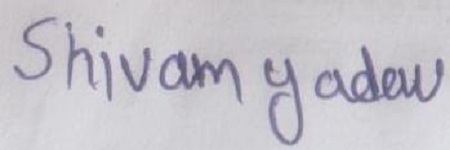 Shivam yadav